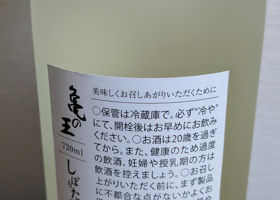 美味しくお召しあがりいただくために
○保管は冷蔵庫で。必ず“冷や”
にて、開栓後はお早めにお飲み
ください。○お酒は20歳を過ぎ
てから。また、健康のため過度
の飲酒、妊婦や授乳期の方は
飲酒を控えましょう。○お召し
上がりいただく前に、まず製品
に不都合な点がないかよくお
亀の王
720ml
しぼりた